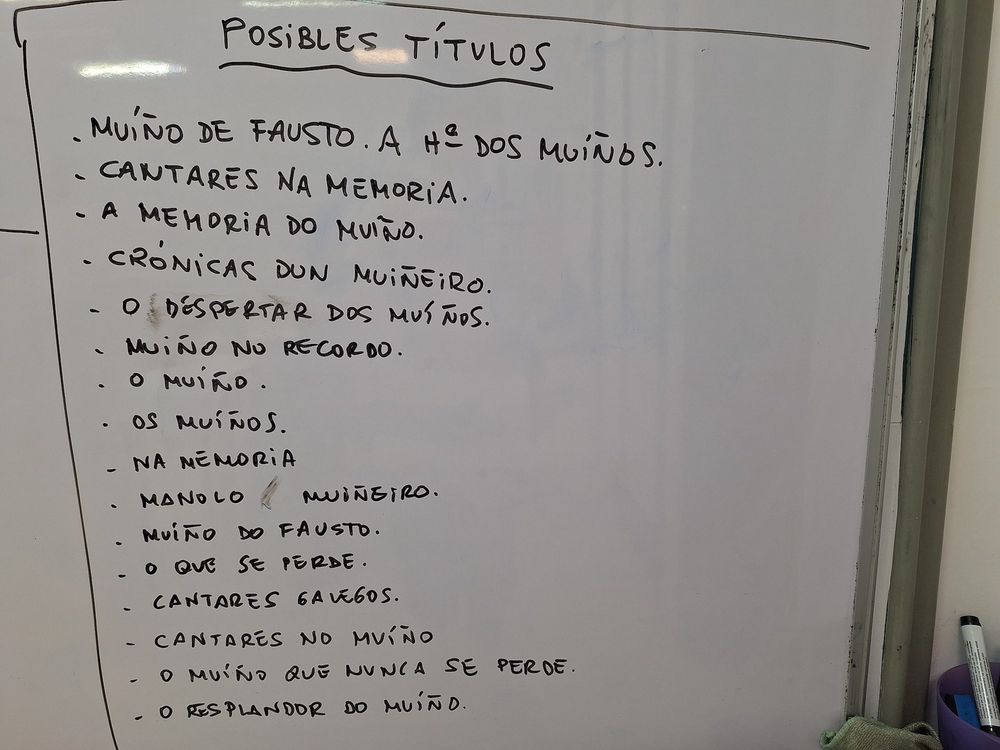 POSIBLES TÍTULOS
- MUÍÑO DE FAUSTO. A Hª DOS MUÍÑOS.
- CANTARES NA MEMORIA.
- A MEMORIA DO MUIÑO.
- CRÓNICAS DUN MUIÑEIRO.
- O DESPERTAR DOS MUÍÑOS.
- MUIÑO NO RECORDO.
- O MUÍÑO.
- OS MUÍÑOS.
- NA MEMORIA
- MANOLO MUIÑEIRO.
- MUÍÑO DO FAUSTO.
- O QUE SE PERDE.
- CANTARES GALEGOS.
- CANTARES NO MUÍÑO
- O MUÍÑO QUE NUNCA SE PERDE.
- O RESPLANDOR DO MUÍÑO.